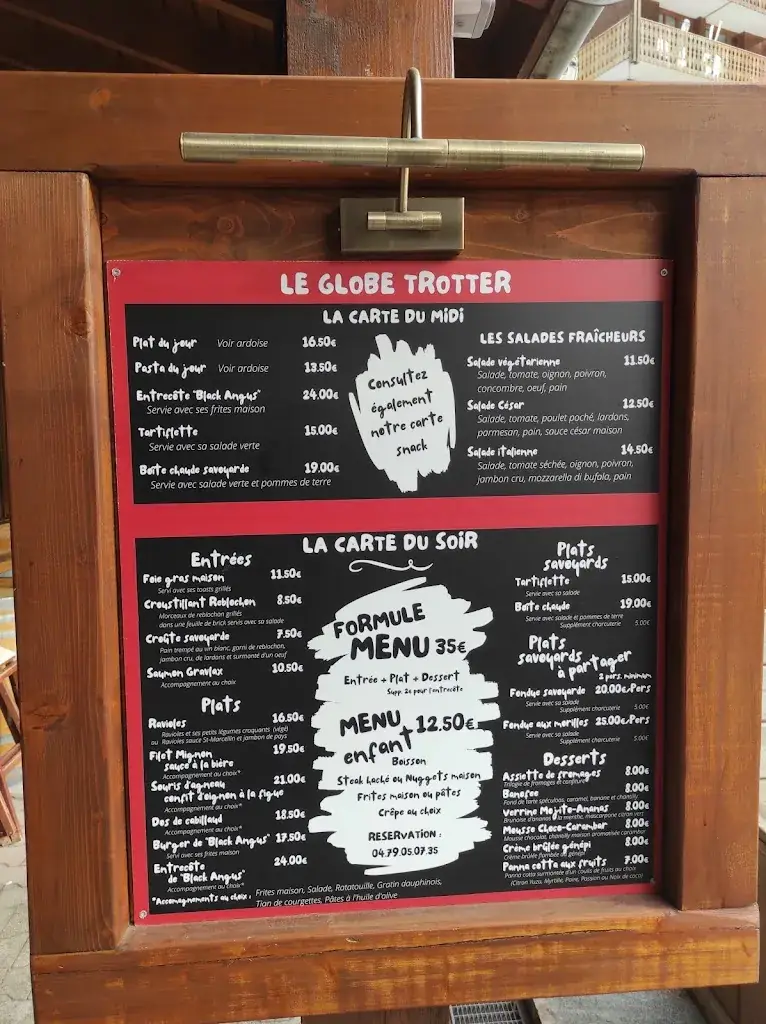 LE GLOBE TROTTER
LA CARTE DU MiDi
Plat du jour Voir ardoise 16.50€
Pasta du jour Voir ardoise 13.50€
Entrecôte "Black Angus" 24.00€
Servie avec ses frites maison
Tartiflette 15.00€
Servie avec sa salade verte
Boîte chaude savoyarde 19.00€
Servie avec salade verte et pommes de terre
Consultez
également
notre carte
snack
LES SALADES FRAÎCHEURS
Salade végétarienne 11.50€
Salade, tomate, oignon, poivron,
concombre, oeuf, pain
Salade César 12.50€
Salade, tomate, poulet poché, lardons,
parmesan, pain, sauce césar maison
Salade italienne 14.50€
Salade, tomate séchée, oignon, poivron,
jambon cru, mozzarella di bufala, pain
LA CARTE DU SOiR
Entrées
Foie gras maison 11.50€
Servi avec ses toasts grillés
Croustillant Reblochon 8.50€
Morceaux de reblochon grillés
dans une feuille de brick servis avec sa salade
Croûte savoyarde 7.50€
Pain trempé au vin blanc, garni de reblochon,
jambon cru, de lardons et surmonté d'un oeuf
Saumon Gravlax 10.50€
Accompagnement au choix
Plats
Ravioles 16.50€
Ravioles et ses petits légumes croquants (végé)
ou Ravioles sauce St-Marcellin et jambon de pays
Filet Mignon 19.50€
sauce à la bière
Accompagnement au choix*
Souris d'agneau 21.00€
confit d'oignon à la figue
Accompagnement au choix*
Dos de cabillaud 18.50€
Accompagnement au choix*
Burger de "Black Angus" 17.50€
Servi avec ses frites maison
Entrecôte 24.00€
de "Black Angus"
Accompagnement au choix*
*Accomagnements au choix : Frites maison, Salade, Ratatouille, Gratin dauphinois,
Tian de courgettes, Pâtes à l'huile d'olive
FORMULE
MENU 35€
Entrée + Plat + Dessert
Supp. 2€ pour l'entrecôte
MENU 12.50€
enfant
Boisson
Steak haché ou Nuggets maison
Frites maison ou pâtes
Crêpe au choix
RESERVATION :
04.79.05.07.35
Plats
savoyards
Tartiflette 15.00€
Servie avec sa salade
Boîte chaude 19.00€
Servie avec salade et pommes de terre
Supplément charcuterie 5.00€
Plats
savoyards
à partager
2 pers. minimum
Fondue savoyarde 20.00€/Pers
Servie avec sa salade
Supplément charcuterie 5.00€
Fondue aux morilles 25.00€/Pers
Servie avec sa salade
Supplément charcuterie 5.00€
Desserts
Assiette de fromages 8.00€
Trilogie de fromages et confiture
Banofee 8.00€
Fond de tarte spéculoos, caramel, banane et chantilly
Verrine Mojito-Ananas 8.00€
Brunoise d'ananas à la menthe, mascarpone citron vert
Mousse Choco-Carambar 8.00€
Mousse chocolat, chantilly maison aromatisée carambar
Crème brûlée génépi 8.00€
Crème brûlée flambée au génépi
Panna cotta aux fruits 7.00€
Panna cotta surmontée d'un coulis de fruits au choix
(Citron Yuzu, Myrtille, Poire, Passion ou Noix de coco)